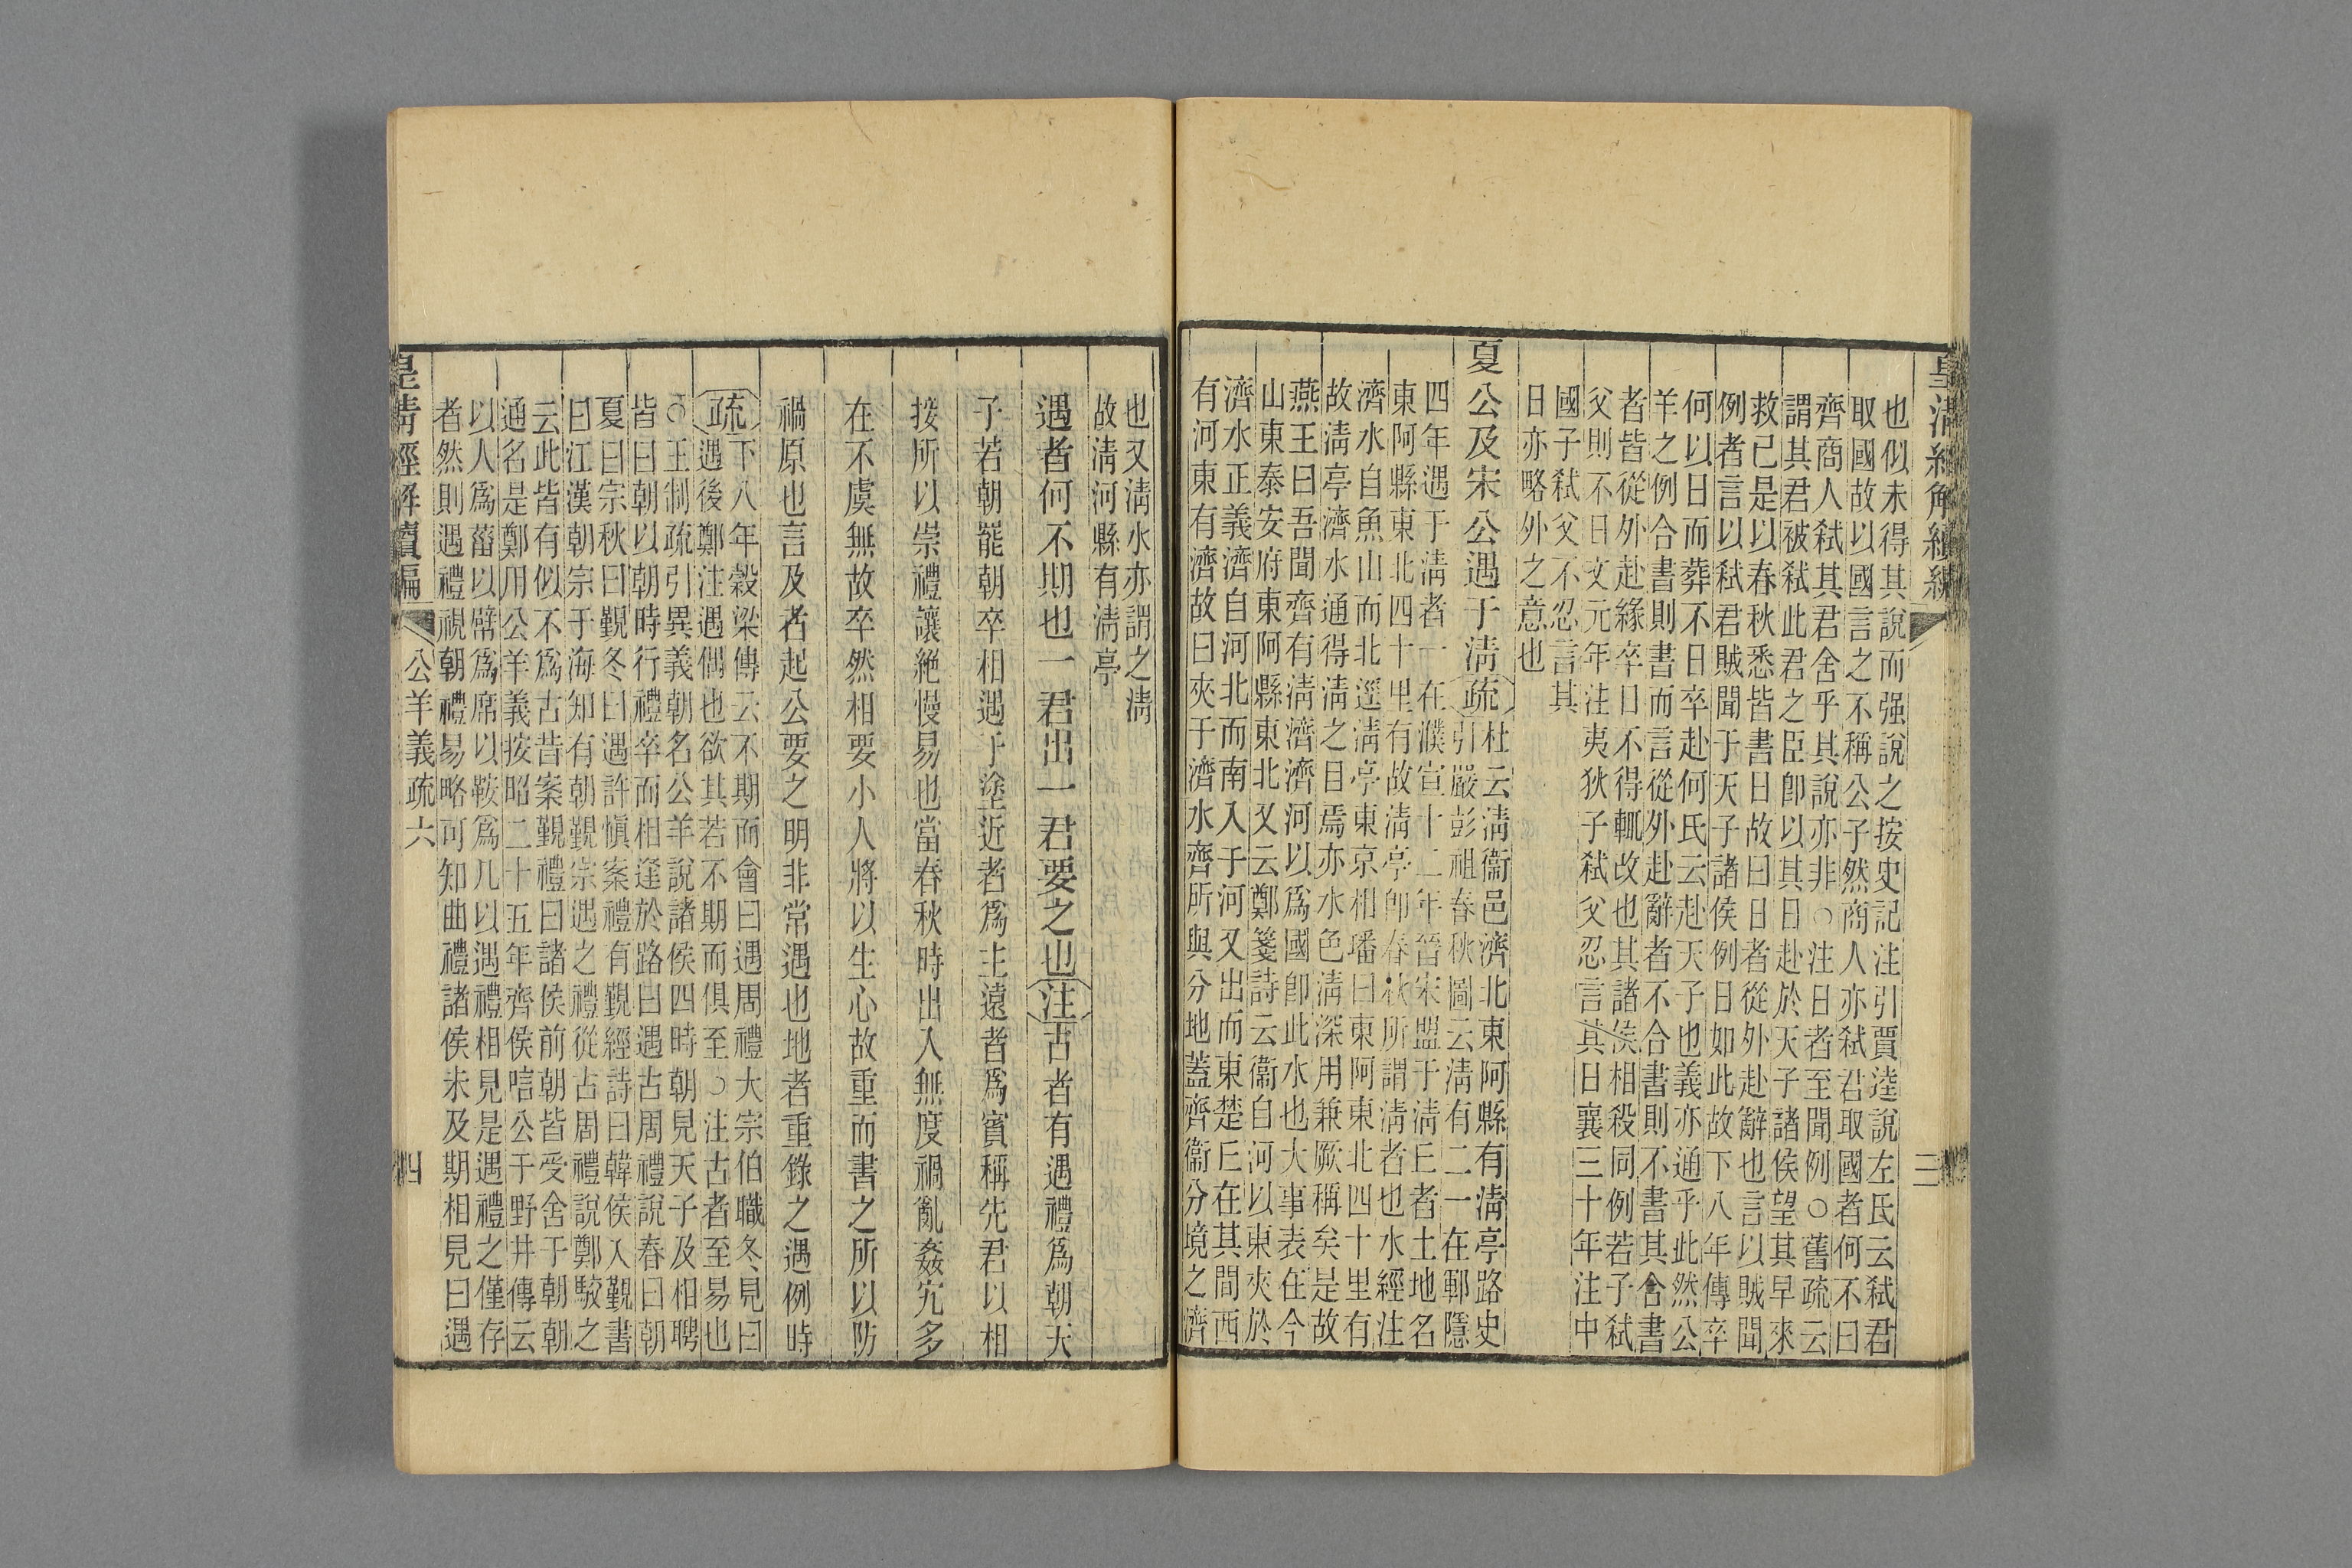 皇淸經解續編
三
也似未得其說而强說之按史記注引賈逵說左氏云弑君
取國故以國言之不稱公子然商人亦弑君取國者何不曰
齊商人弑其君舍乎其說亦非○注日者至聞例○舊疏云
謂其君被弑此君之臣卽以其日赴於天子諸侯望其早來
救已是以春秋悉皆書日故曰日者從外赴辭也言以賊聞
例者言以弑君賊聞于天子諸侯例日如此故下八年傳卒
何以日而葬不日卒赴何氏云赴天子也義亦通乎此然公
羊之例合書則書而言從外赴辭者不合書則不書其合書
者皆從外赴緣卒日不得輒改也其諸侯相殺同例若子弑
父則不日文元年注夷狄子弑父忍言其日襄三十年注中
國子弑父不忍言其
日亦略外之意也
夏公及宋公遇于淸疏
杜云淸衞邑濟北東阿縣有淸亭路史
引嚴彭祖春秋圖云淸有二一在鄆隱
四年遇于淸者一在濮宣十二年晉宋盟于淸𠀌者土地名
東阿縣東北四十里有故淸亭卽春秋所謂淸者也水經注
濟水自魚山而北逕淸亭東京相璠曰東阿東北四十里有
故淸亭濟水通得淸之目焉亦水色淸深用兼厥稱矣是故
燕王曰吾聞齊有淸濟濟河以爲國卽此水也大事表在今
山東泰安府東阿縣東北又云鄭箋詩云衞自河以東夾於
濟水正義濟自河北而南入于河又出而東楚𠀌在其間西
有河東有濟故曰夾于濟水齊所與分地蓋齊衞分境之濟
也又淸水亦謂之淸
故淸河縣有淸亭
遇者何不期也一君出一君要之也注古者有遇禮爲朝天
子若朝罷朝卒相遇于塗近者爲主遠者爲賓稱先君以相
接所以崇禮讓絶慢易也當春秋時出入無度禍亂姦宄多
在不虞無故卒然相要小人將以生心故重而書之所以防
禍原也言及者起公要之明非常遇也地者重錄之遇例時
疏
下八年穀梁傳云不期而會曰遇周禮大宗伯職冬見曰
遇後鄭注遇偶也欲其若不期而俱至○注古者至易也
○王制疏引異義朝名公羊說諸侯四時朝見天子及相聘
皆曰朝以朝時行禮卒而相逢於路曰遇古周禮說春曰朝
夏曰宗秋曰覲冬曰遇許愼案禮有覲經詩曰韓侯入覲書
曰江漢朝宗于海知有朝覲宗遇之禮從古周禮說鄭駁之
云此皆有似不爲古昔案覲禮曰諸侯前朝皆受舍于朝朝
通名是鄭用公羊義按昭二十五年齊侯唁公于野井傳云
以人爲菑以幦爲席以鞍爲几以遇禮相見是遇禮之僅存
者然則遇禮視朝禮易略可知曲禮諸侯未及期相見曰遇
皇淸經解續編
公羊義疏六
四